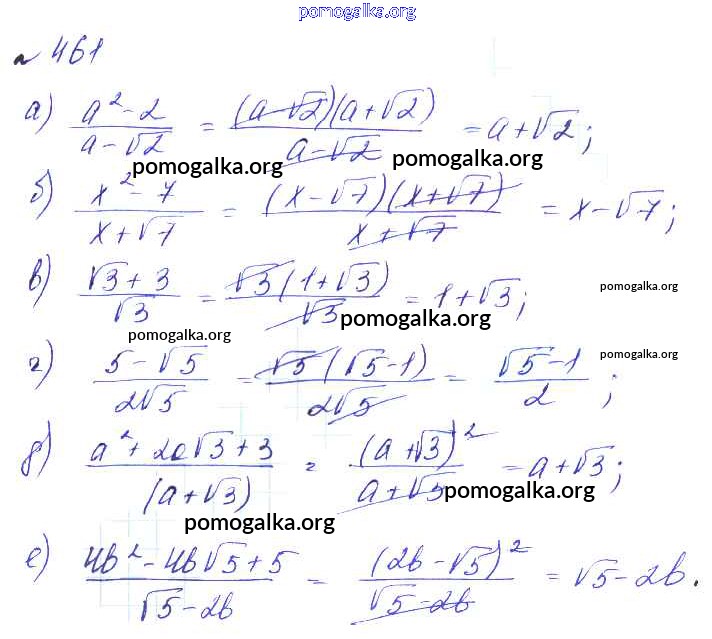 pomogalka.org
№ 461
а) (a² - 2)/(a - √2) = ((a - √2)(a + √2))/(a - √2) = a + √2;
pomogalka.org pomogalka.org
б) (x² - 7)/(x + √7) = ((x - √7)(x + √7))/(x + √7) = x - √7;
в) (√3 + 3)/√3 = (√3(1 + √3))/√3 = 1 + √3;
pomogalka.org
pomogalka.org
pomogalka.org
г) (5 - √5)/(2√5) = (√5(√5 - 1))/(2√5) = (√5 - 1)/2;
pomogalka.org
д) (a² + 2a√3 + 3)/(a + √3) = (a + √3)²/(a + √3) = a + √3;
pomogalka.org
pomogalka.org
е) (4b² - 4b√5 + 5)/(√5 - 2b) = (2b - √5)²/(√5 - 2b) = √5 - 2b.